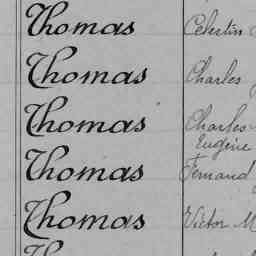 Thomas Célestin
Thomas Charles
Thomas Charles
Eugène
Thomas Fernand
Thomas Victor M